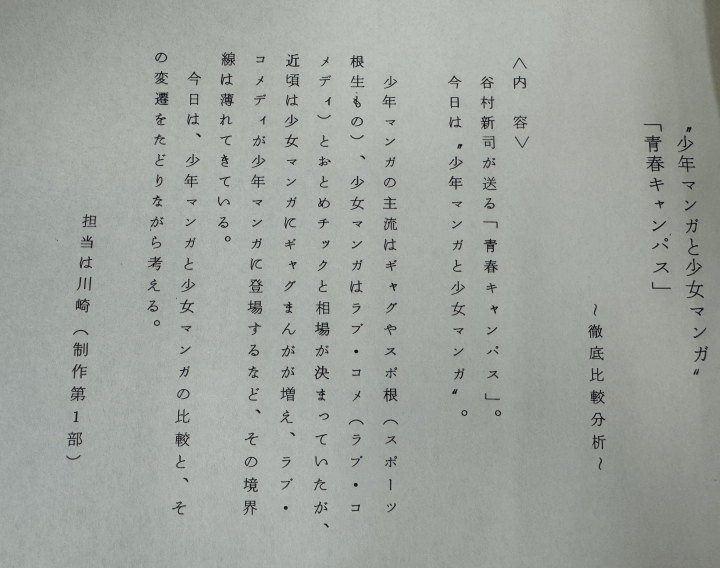 〝少年マンガと少女マンガ〟
「青春キャンパス」
～徹底比較分析～
〈内　容〉
谷村新司が送る「青春キャンパス」。
今日は〝少年マンガと少女マンガ〟。
少年マンガの主流はギャグやスポ根（スポーツ
根生もの）、少女マンガはラブ・コメ（ラブ・コ
メディ）とおとめチックと相場が決まっていたが、
近頃は少女マンガにギャグまんがが増え、ラブ・
コメディが少年マンガに登場するなど、その境界
線は薄れてきている。
今日は、少年マンガと少女マンガの比較と、そ
の変遷をたどりながら考える。
担当は川崎（制作第１部）